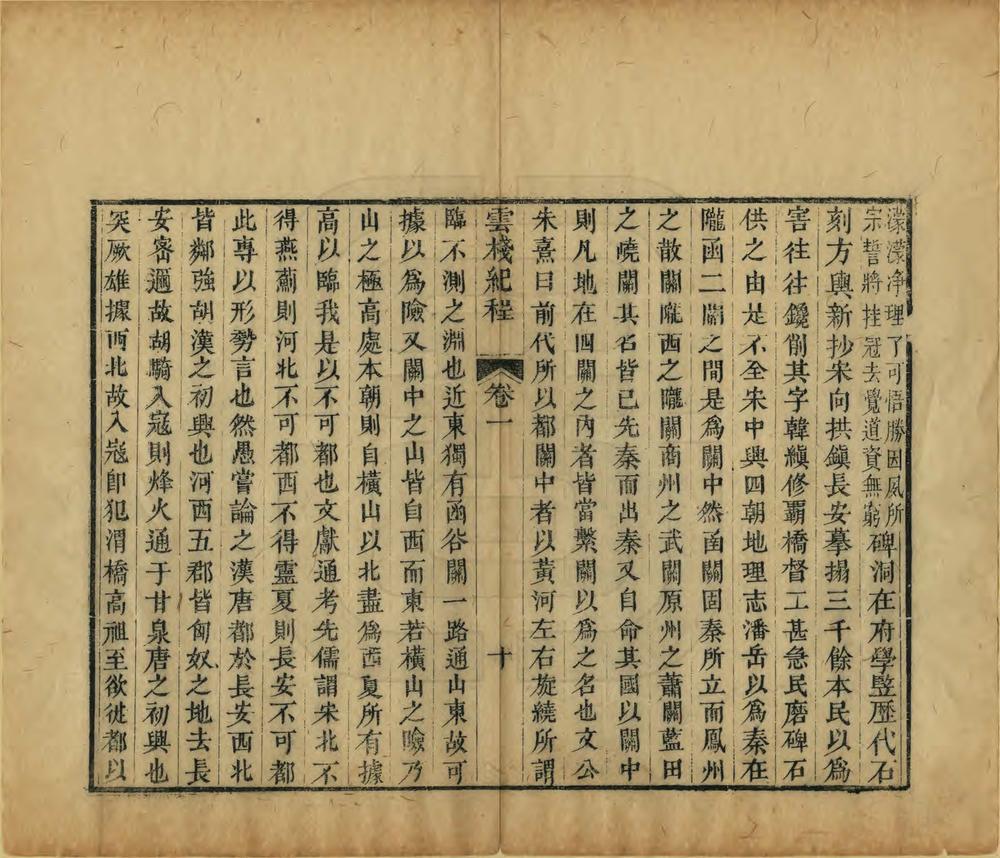 濛濛淨理了可悟勝因夙所
宗誓將挂冠去覺道資無窮碑洞在府學豎歷代石
刻方輿新抄宋向拱鎮長安摹搨三千餘本民以爲
害往往鑱削其字韓縝修霸橋督工甚急民磨碑石
供之由是不全宋中興四朝地理志潘岳以爲秦在
隴函二關之間是爲關中然函關固秦所立而鳳州
之散關隴西之隴關商州之武關原州之蕭關藍田
之嶢關其名皆已先秦而出秦又自命其國以關中
則凡地在四關之內者皆當繫關以爲之名也文公
朱熹曰前代所以都關中者以黃河左右旋繞所謂
雲棧紀程 卷一 十
臨不測之淵也近東獨有函谷關一路通山東故可
據以爲險又關中之山皆自西而東若橫山之險乃
山之極高處本朝則自橫山以北盡爲西夏所有據
高以臨我是以不可都也文獻通考先儒謂宋北不
得燕薊則河北不可都西不得靈夏則長安不可都
此專以形勢言也然愚嘗論之漢唐都於長安西北
皆鄰強胡漢之初興也河西五郡皆匈奴之地去長
安密邇故胡騎入寇則烽火通于甘泉唐之初興也
突厥雄據西北故入寇即犯渭橋高祖至欲徙都以